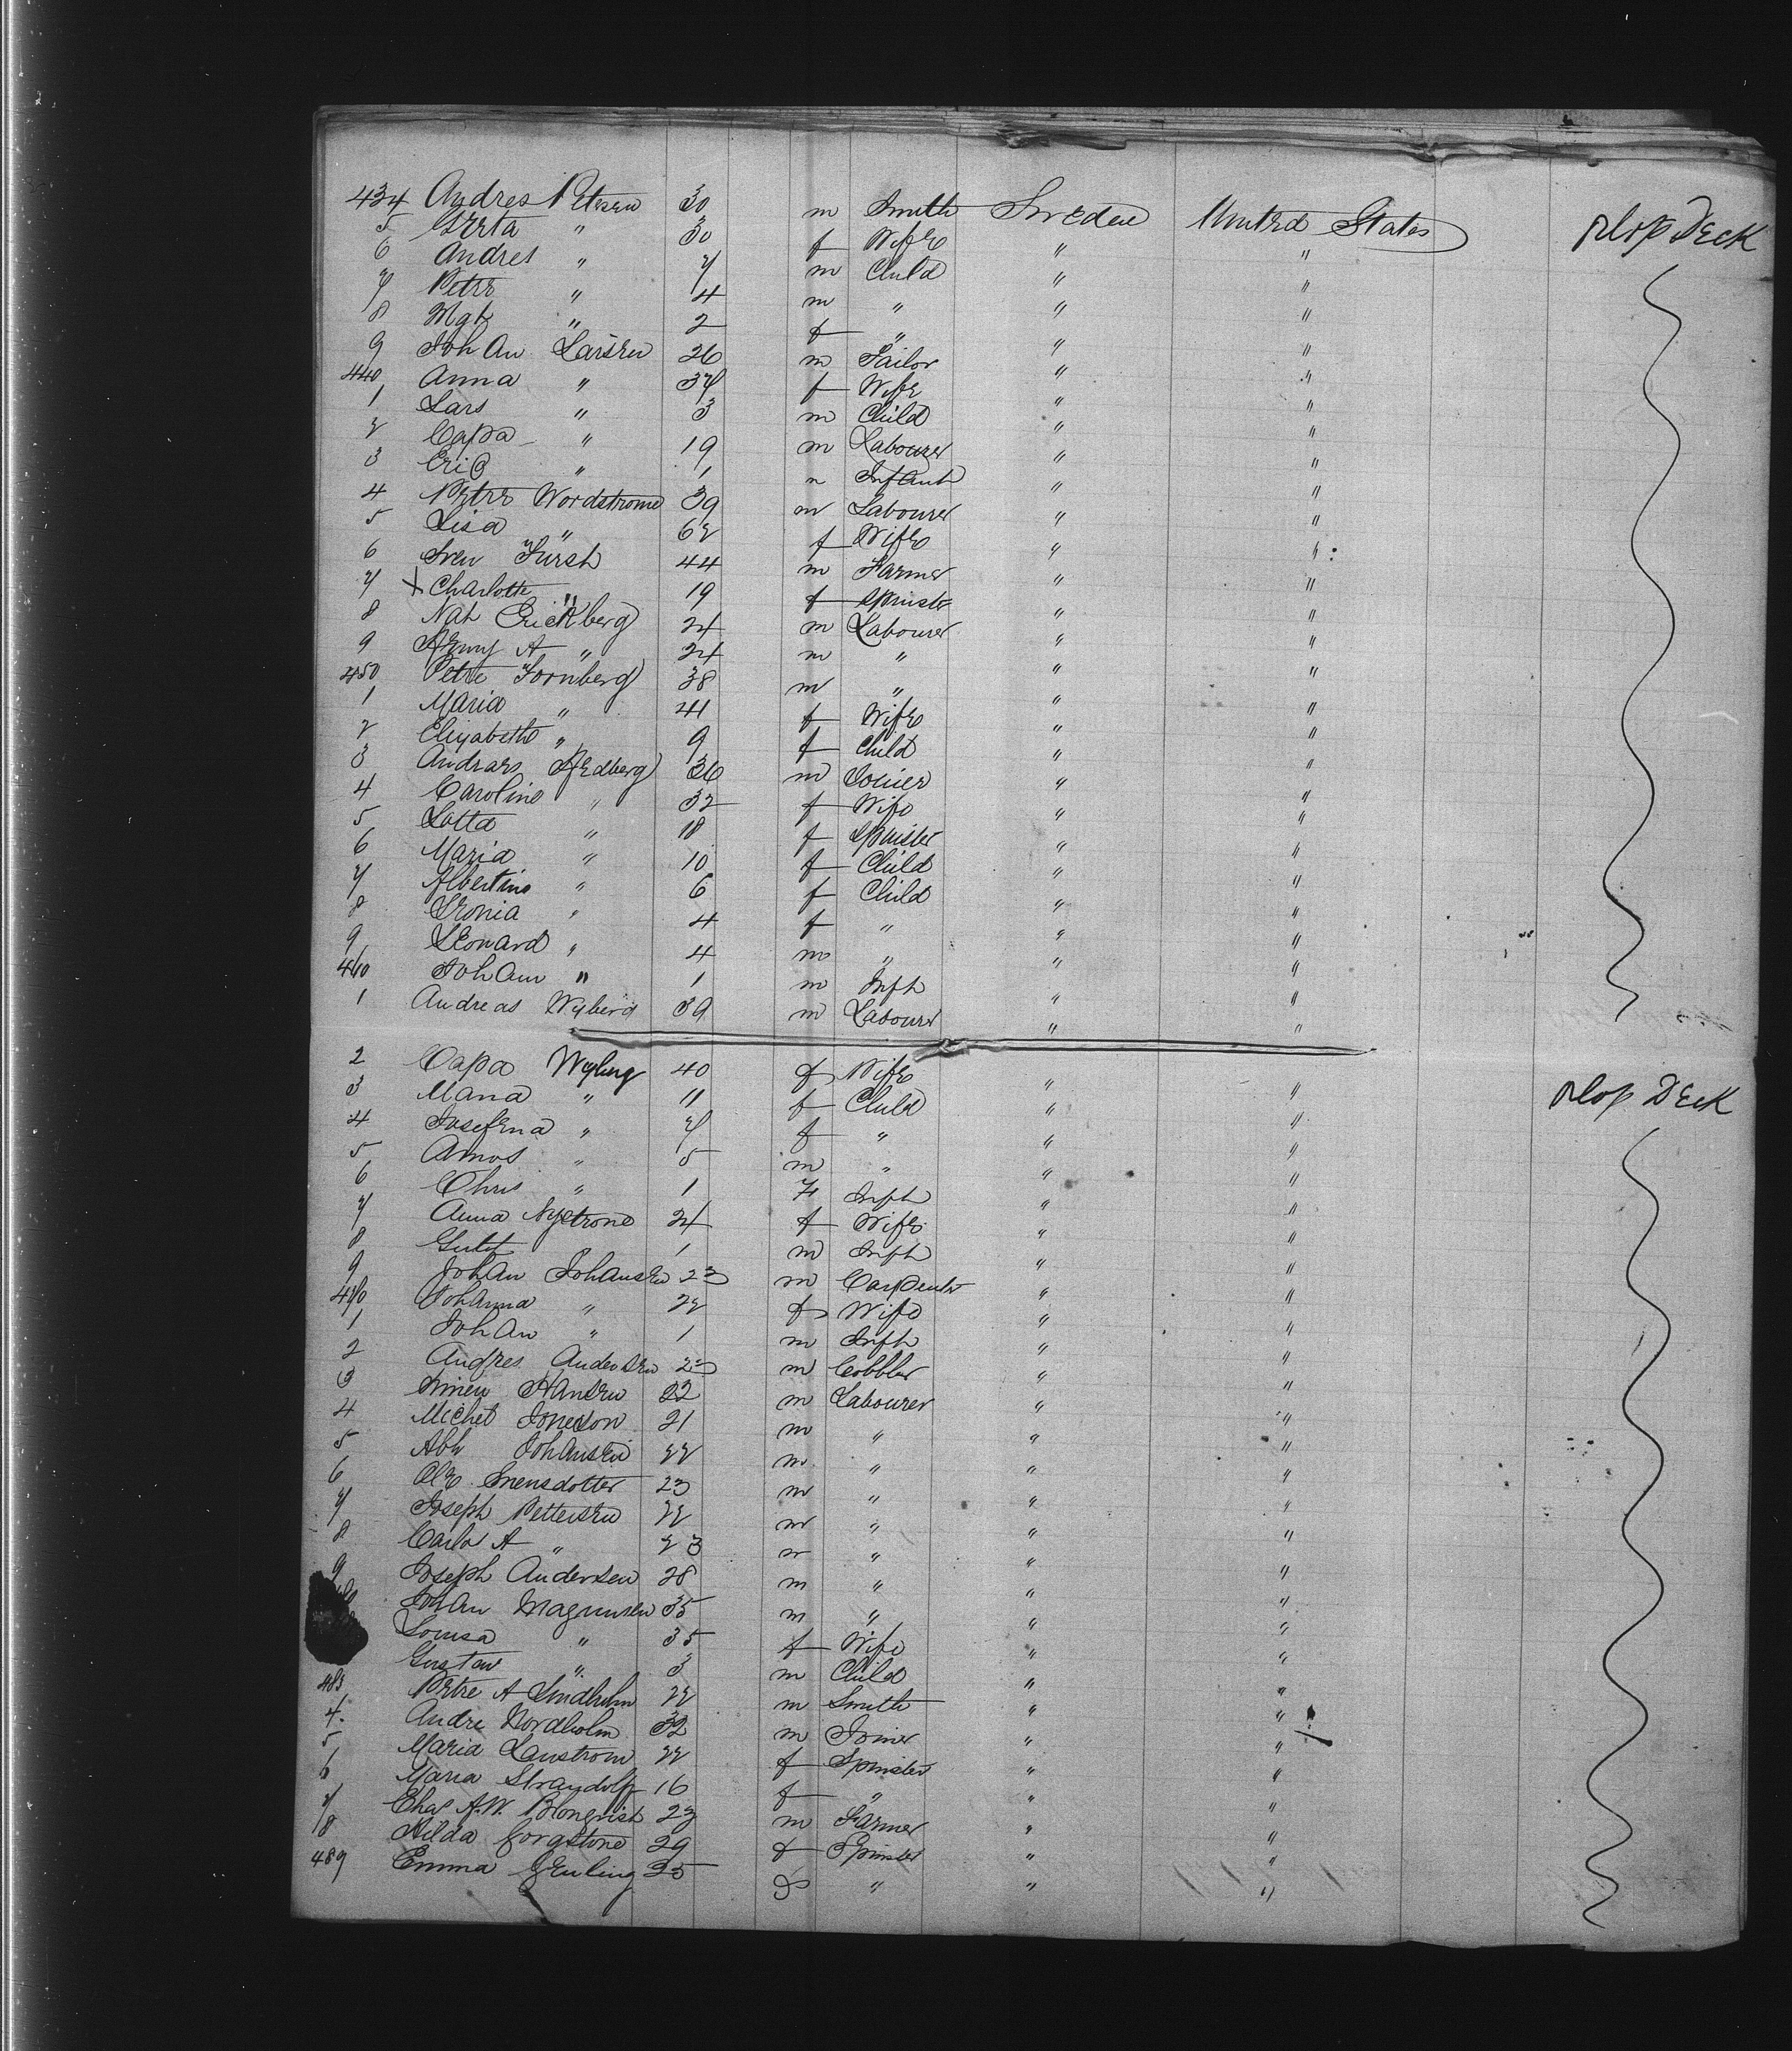 434 Andres Petersen 30 m Smith Sweden United States Slop Deck
5 Greta " 30 f Wife " "
6 Andres " 7 m Child " "
7 Petre " 4 m " " "
8 Mgt " 2 f " " "
9 Johan Larsen 26 m Tailor " "
440 Anna " 37 f Wife " "
1 Lars " 3 m Child " "
2 Capa " 19 m Labourer " "
3 Eric " 1 m Infant " "
4 Petre Nordstrome 39 m Labourer " "
5 Lisa " 62 f Wife " "
6 Sven Fursh 44 m Farmer " "
7 x Charlotte " 19 f Spinster " "
8 Nat Erickberg 24 m Labourer " "
9 Henry A " 24 m " " "
450 Petre Fornberg 38 m " " "
1 Maria " 41 f Wife " "
2 Elizabeth " 9 f Child " "
3 Andrars Hedberg 36 m Joiner " "
4 Caroline " 32 f Wife " "
5 Lotta " 18 f Spinster " "
6 Maria " 10 f Child " "
7 Albertino " 6 f Child " "
8 Leonia " 4 f " " "
9 Leonard " 4 m " " "
460 Johann " 1 m Inft " "
1 Andreas Wyberg 39 m Labourer " "
2 Capa Wyberg 40 f Wife " " Slop Deck
3 Maria " 11 f Child " "
4 Josefena " 7 f " " "
5 Amos " 5 m " " "
6 Chris " 1 f Inft " "
7 Anna Nystrone 24 f Wife " "
8 1 m Inft " "
9 Johan Johansen 23 m Carpenter " "
470 Johanna " 22 f Wife " "
1 Johan " 1 m Inft " "
2 Andres Andersen 23 m Cobbler " "
3 Hansen 22 m Labourer " "
4 Michel Joneson 21 m " " "
5 Abh Johansen 22 m " " "
6 Ole Svensdotter 23 m " " "
7 Joseph Pettersen 22 m " " "
8 Carlo A " 23 m " " "
9 Joseph Andersen 28 m " " "
Johan Magnusen 35 m " " "
Lousa " 35 f Wife " "
Gustav " 3 m Child " "
483 Petre A Lindholm 22 m Smith " "
4 Andre Nordholm 32 m Joiner " "
5 Maria Lanstrom 22 f Spinster " "
6 Maria Strandolf 16 f " " "
7 Chas A.W. Blonqvist 23 m Farmer " "
8 Hilda Corgstone 29 f Spinster " "
489 Emma Genling 25 f " " "